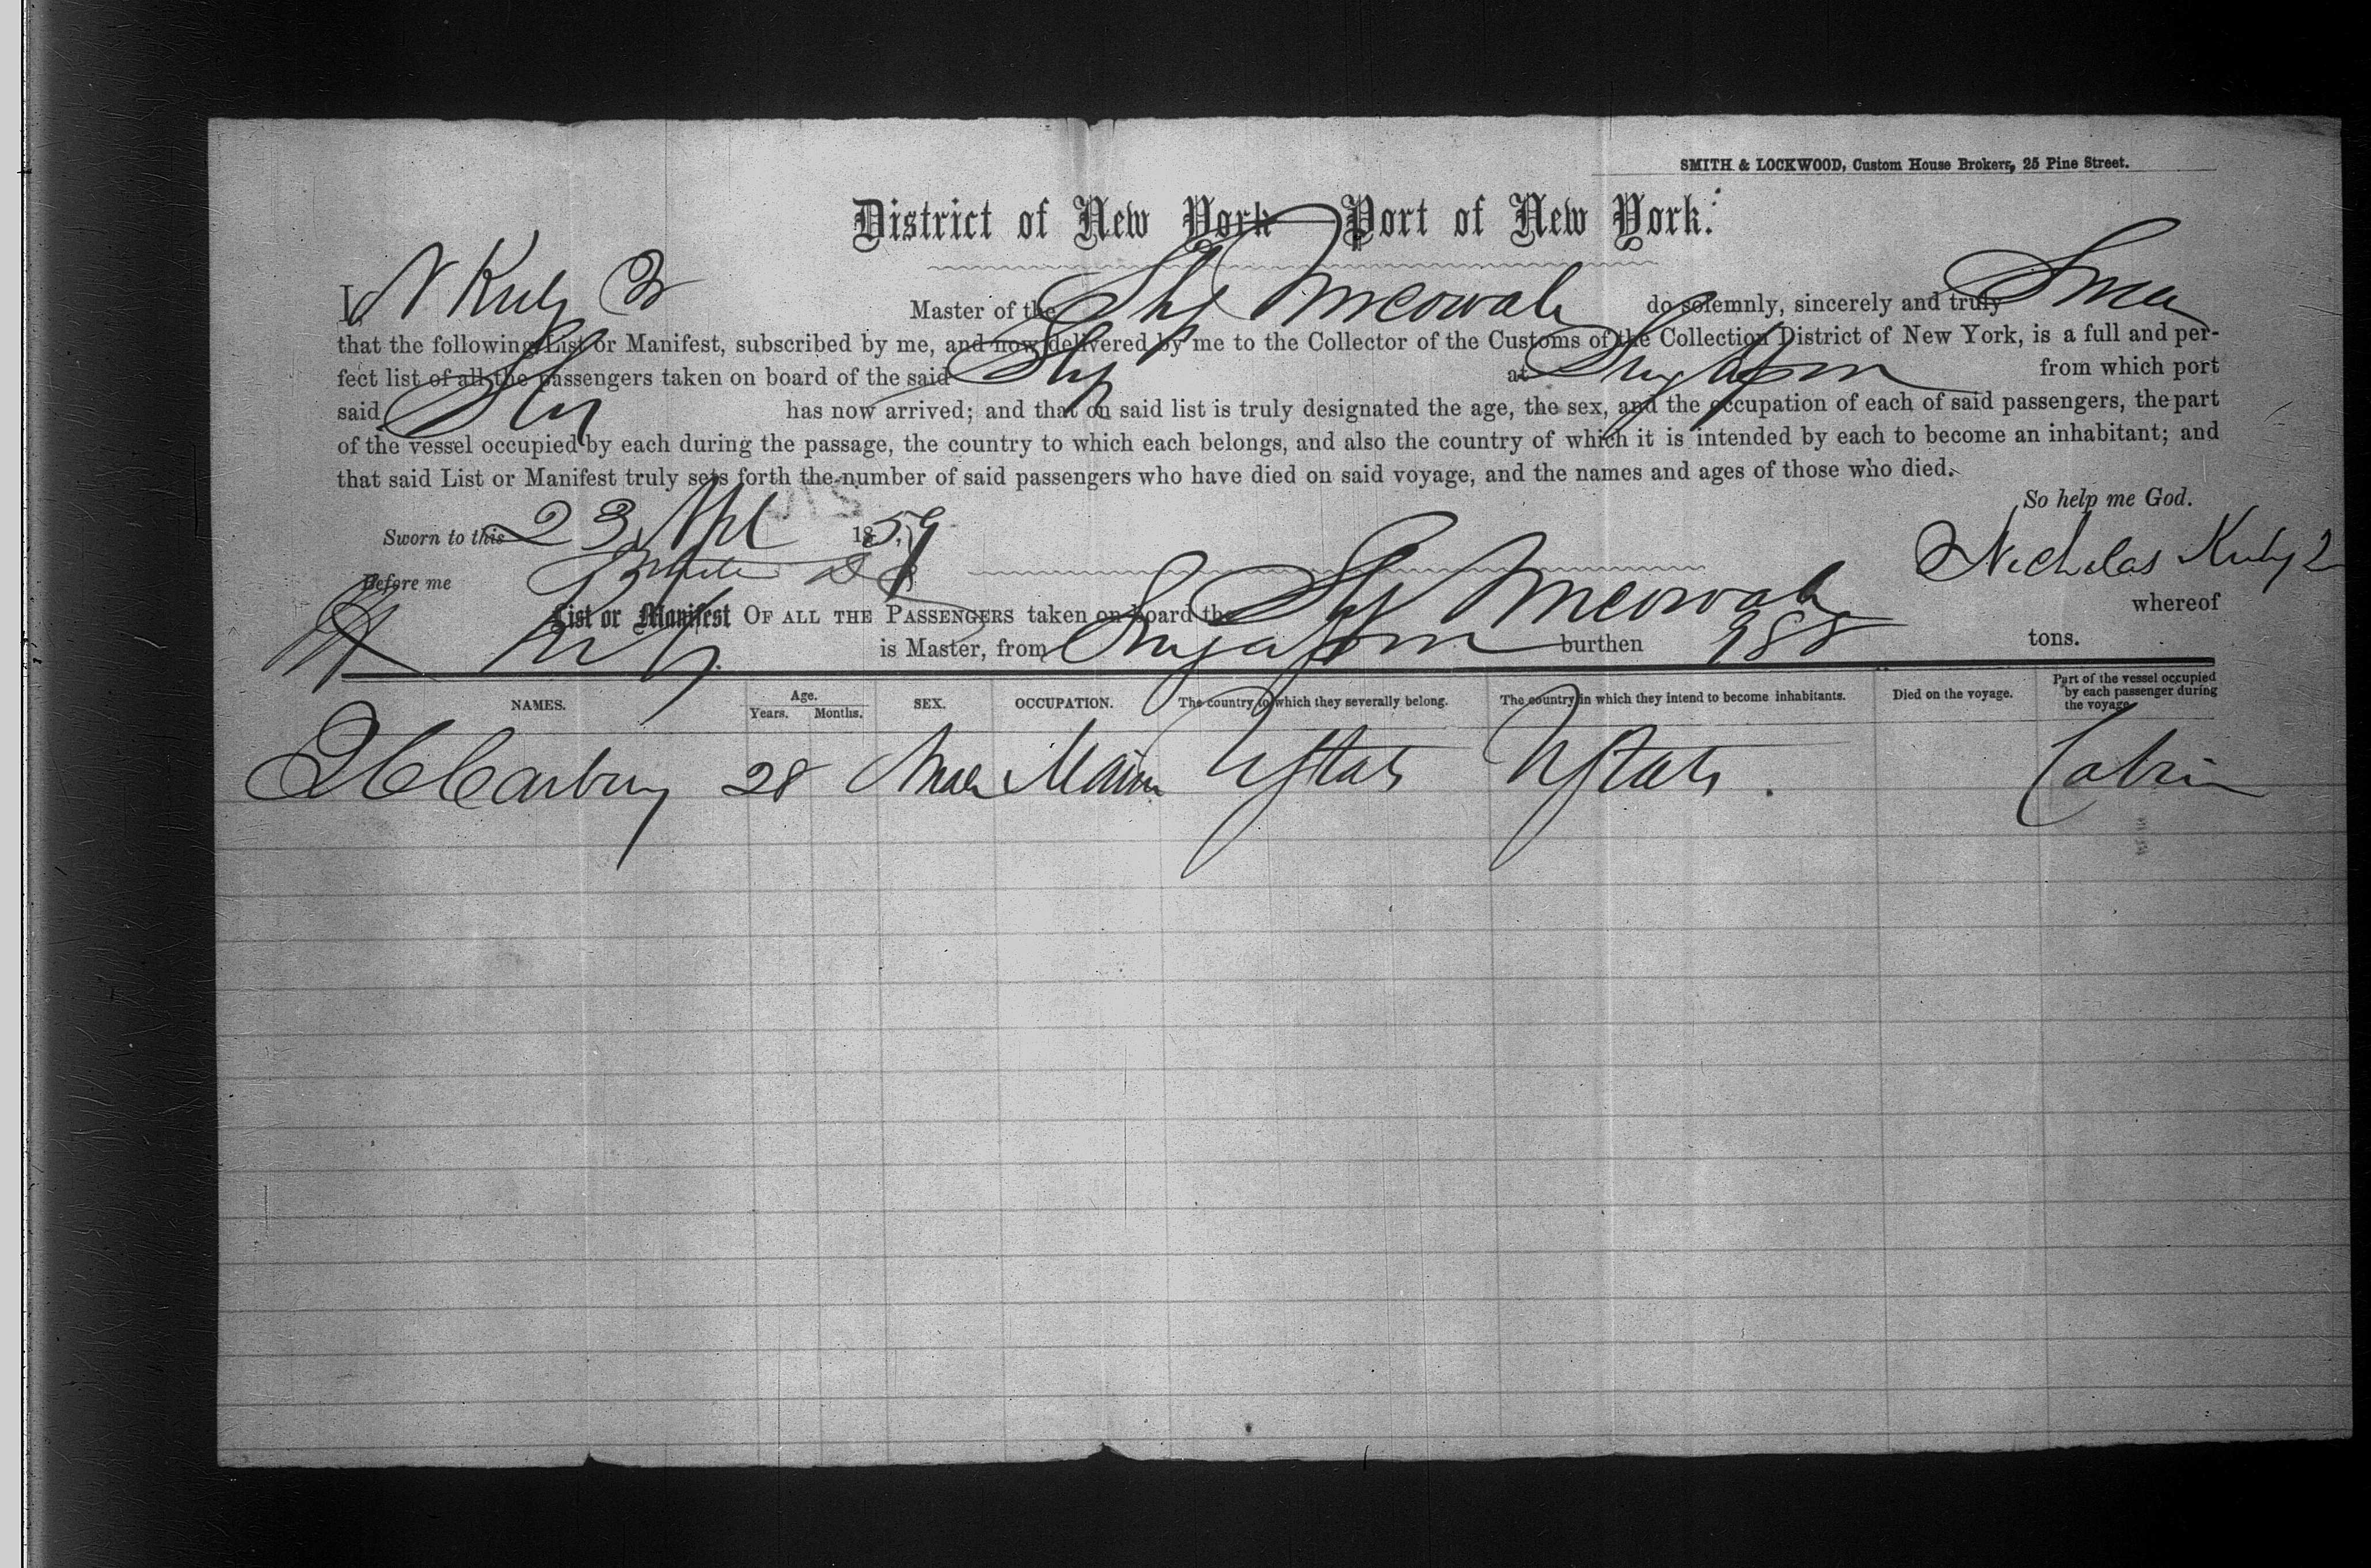 SMITH & LOCKWOOD, Custom House Brokers, 25 Pine Street.
District of New York Port of New York.
I, N Kirby 2 Master of the Ship do solemnly, sincerely and truly Swear
that the following List or Manifest, subscribed by me, and now delivered by me to the Collector of the Customs of the Collection District of New York, is a full and per-
fect list of all the passengers taken on board of the said Ship at from which port
said Ship has now arrived; and that on said list is truly designated the age, the sex, and the occupation of each of said passengers, the part
of the vessel occupied by each during the passage, the country to which each belongs, and also the country of which it is intended by each to become an inhabitant; and
that said List or Manifest truly sets forth the number of said passengers who have died on said voyage, and the names and ages of those who died.
So help me God.
Sworn to this 23 Apl 1859
Before me Nicholas Kirby 2
List or Manifest OF ALL THE PASSENGERS taken on board the Ship whereof
is Master, from burthen 988 tons.
NAMES. Age. Years. Months. SEX. OCCUPATION. The country to which they severally belong. The country in which they intend to become inhabitants. Died on the voyage. Part of the vessel occupied by each passenger during the voyage.
28 Male U States U States Cabin